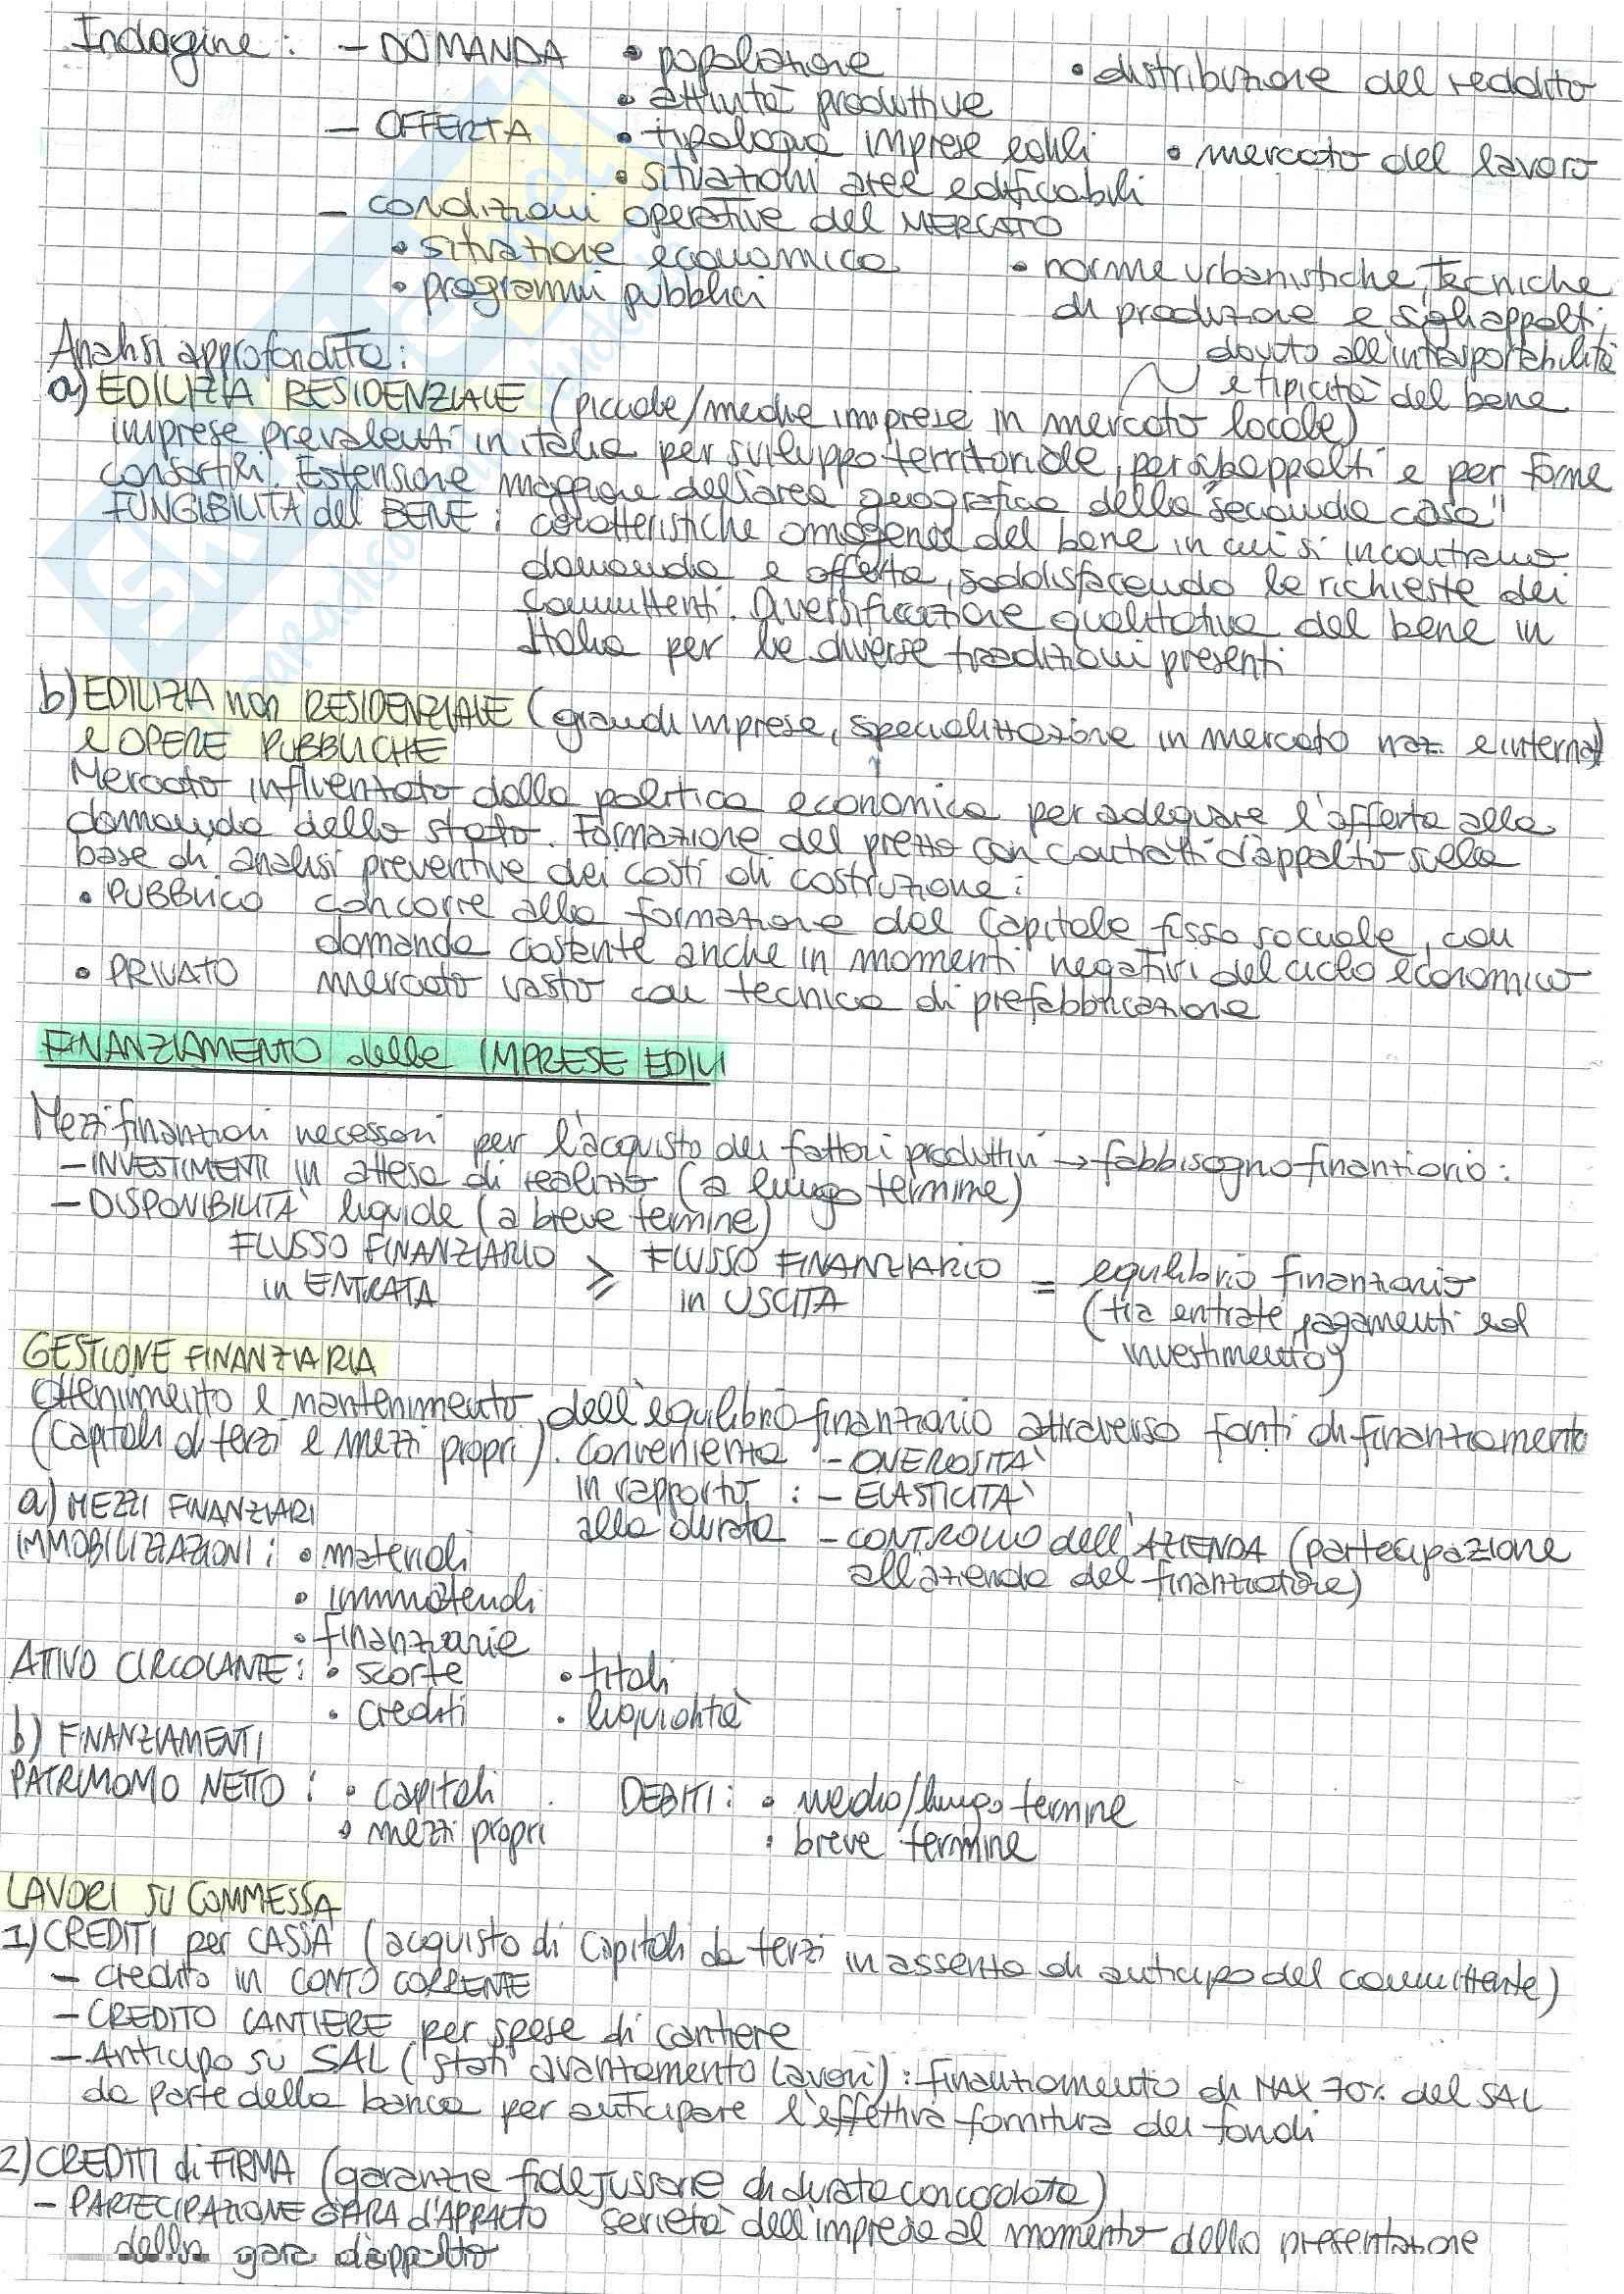 Indagine: - DOMANDA • popolazione • distribuzione del reddito
• attività produttive
- OFFERTA • tipologia imprese edili • mercato del lavoro
• situazioni aree edificabili
- condizioni operative del MERCATO
• situazione economica • norme urbanistiche, tecniche
• programmi pubblici di produzione e sigli appalti,
Analisi approfondita: dovuto all'intrasportabilità
e tipicità del bene
a) EDILIZIA RESIDENZIALE (piccole/medie imprese in mercato locale)
imprese prevalenti in italia per sviluppo territoriale, per subappalti e per forme
consortili. Estensione maggiore dell'area geografica della "seconda casa"
FUNGIBILITÀ del BENE: caratteristiche omogenee del bene in cui si incontrano
domanda e offerta, soddisfacendo le richieste dei
committenti. Diversificazione qualitativa del bene in
Italia per le diverse tradizioni presenti
b) EDILIZIA non RESIDENZIALE (grandi imprese, specializzazione in mercato naz. e internaz)
e OPERE PUBBLICHE
Mercato influenzato dalla politica economica per adeguare l'offerta alla
domanda dello stato. Formazione del prezzo con contratti d'appalto sulla
base di analisi preventive dei costi di costruzione:
• PUBBLICO concorre alla formazione del capitale fisso sociale, con
domanda costante anche in momenti negativi del ciclo economico
• PRIVATO mercato vasto con tecnica di prefabbricazione
FINANZIAMENTO delle IMPRESE EDILI
Mezzi finanziari necessari per l'acquisto dei fattori produttivi → fabbisogno finanziario:
- INVESTIMENTI in attesa di realizzo (a lungo termine)
- DISPONIBILITÀ liquide (a breve termine)
FLUSSO FINANZIARIO ≥ FLUSSO FINANZIARIO = equilibrio finanziario
in ENTRATA in USCITA (tra entrate, pagamenti ed
investimento)
GESTIONE FINANZIARIA
Ottenimento e mantenimento dell'equilibrio finanziario attraverso fonti di finanziamento
(capitali di terzi e mezzi propri). Convenienza - ONEROSITÀ
in rapporto : - ELASTICITÀ
a) MEZZI FINANZIARI alla durata - CONTROLLO dell'AZIENDA (partecipazione
IMMOBILIZZAZIONI: • materiali all'azienda del finanziatore)
• immateriali
• finanziarie
ATTIVO CIRCOLANTE: • scorte • titoli
• crediti • liquidità
b) FINANZIAMENTI
PATRIMONIO NETTO: • capitali DEBITI: • medio/lungo termine
• mezzi propri • breve termine
LAVORI SU COMMESSA
1) CREDITI per CASSA (acquisto di capitali da terzi in assenza di anticipo del committente)
- credito in CONTO CORRENTE
- CREDITO CANTIERE per spese di cantiere
- Anticipo su SAL (stati avanzamento lavori): finanziamento di MAX 70% del SAL
da parte della banca per anticipare l'effettiva fornitura dei fondi
2) CREDITI di FIRMA (garanzie fidejussorie di durata concordata)
- PARTECIPAZIONE GARA d'APPALTO serietà dell'impresa al momento della presentazione
della gara d'appalto